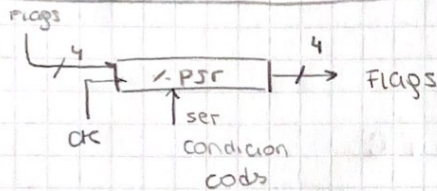 Flags
4
4
%psr
Flags
CK
ser
condicion
cods